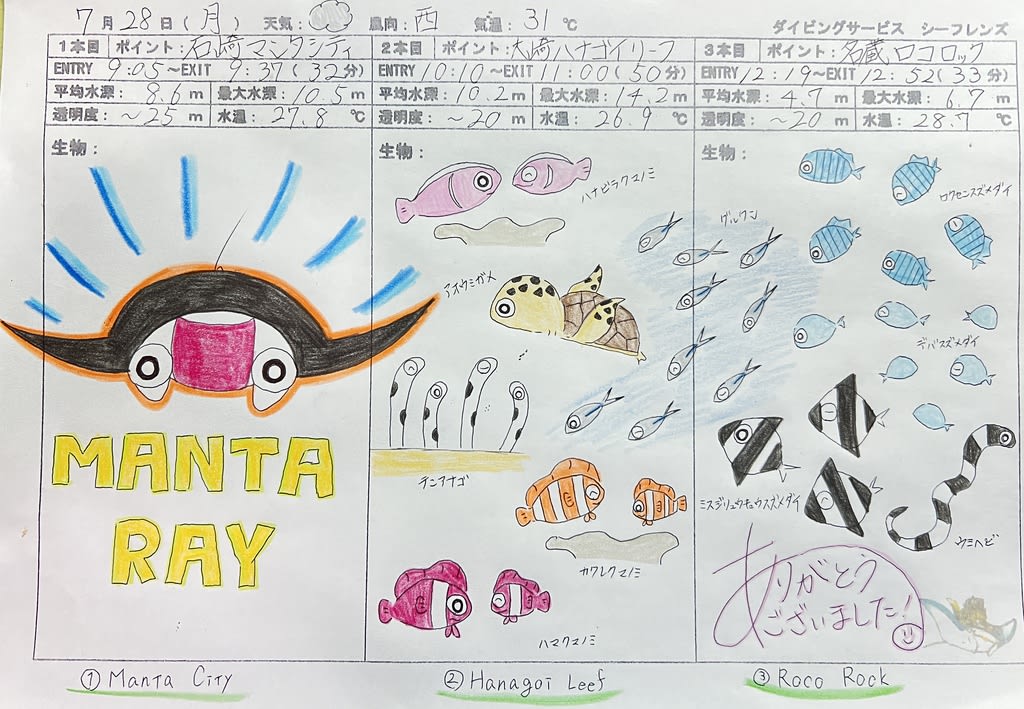 7月28日(月) 天気: 風向: 西 気温: 31℃
ダイビングサービス シーフレンズ
1本目 ポイント:石崎マンタシティ
ENTRY 9:05~EXIT 9:37(32分)
平均水深: 8.6m 最大水深: 10.5m
透明度: ~25m 水温: 27.8℃
生物:
MANTA
RAY
① Manta City
2本目 ポイント:大崎ハナゴイリーフ
ENTRY 10:10~EXIT 11:00(50分)
平均水深: 10.2m 最大水深: 14.2m
透明度: ~20m 水温: 26.9℃
生物:
ハナビラクマノミ
グルクン
アオウミガメ
チンアナゴ
カクレクマノミ
ハマクマノミ
② Hanagoi Leef
3本目 ポイント:名蔵ロコロック
ENTRY 12:19~EXIT 12:52(33分)
平均水深: 4.7m 最大水深: 6.7m
透明度: ~20m 水温: 28.7℃
生物:
ロクセンスズメダイ
デバスズメダイ
ミスジリュウキュウスズメダイ
ウミヘビ
ありがとう
ございました!
③ Roco Rock